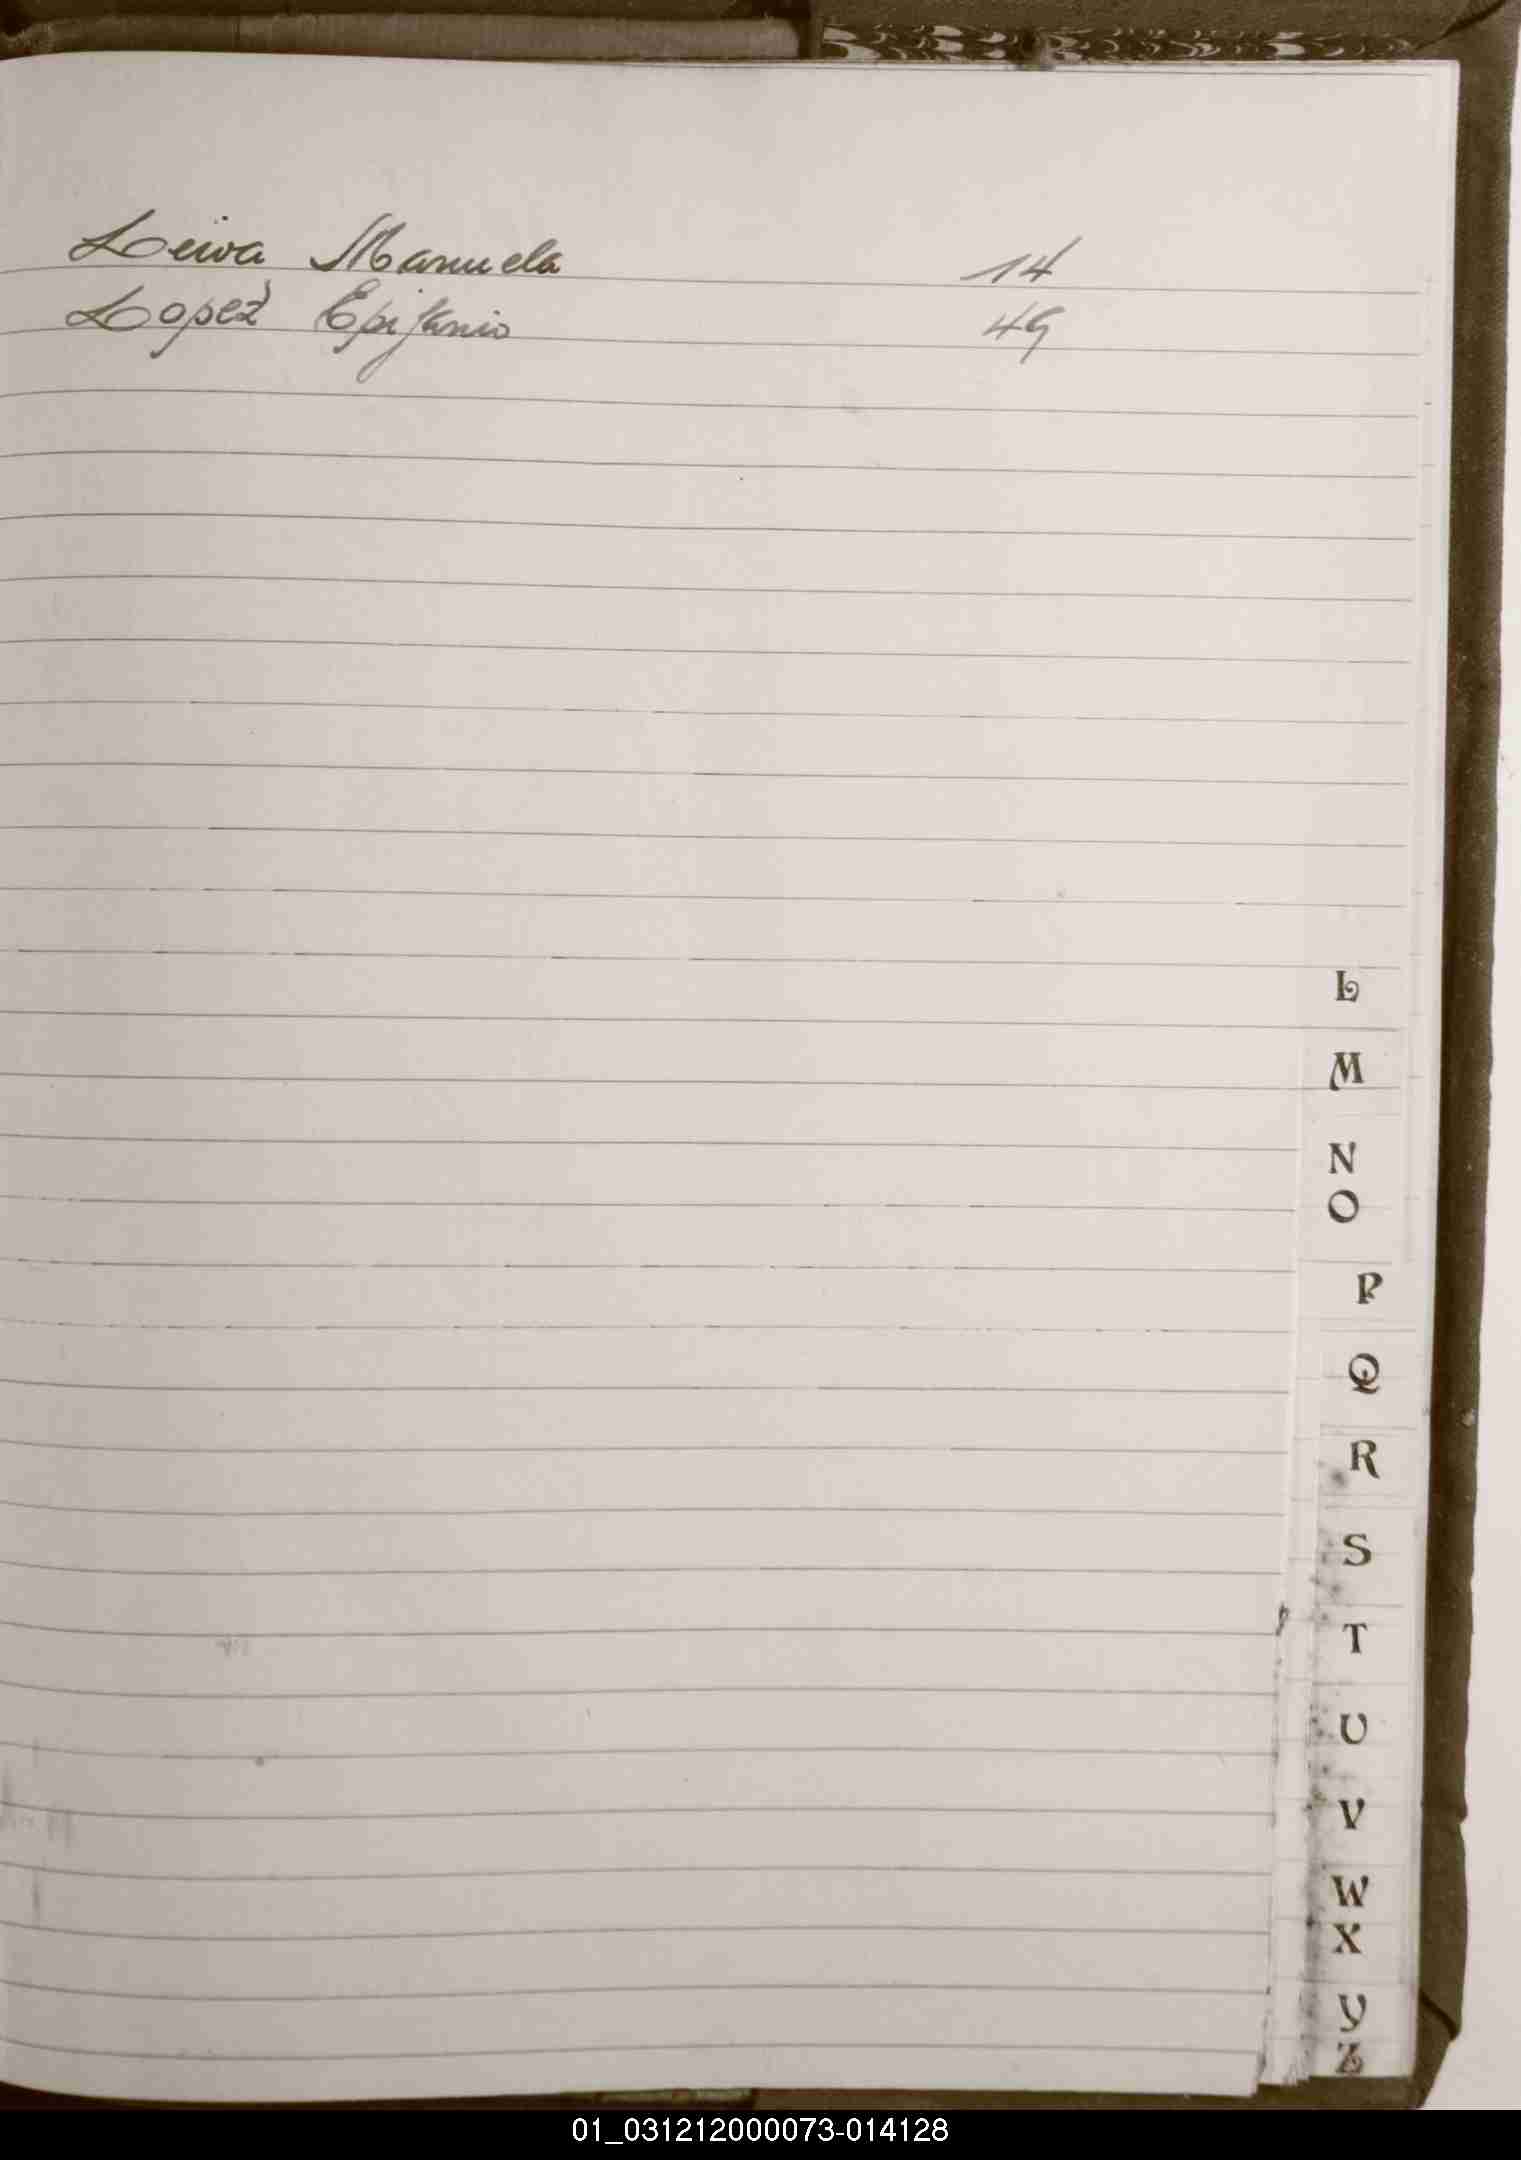 Leiva Manuela 14
Lopez Epifanio 49
L
M
N
O
P
Q
R
S
T
U
V
W
X
Y
Z
01_031212000073-014128